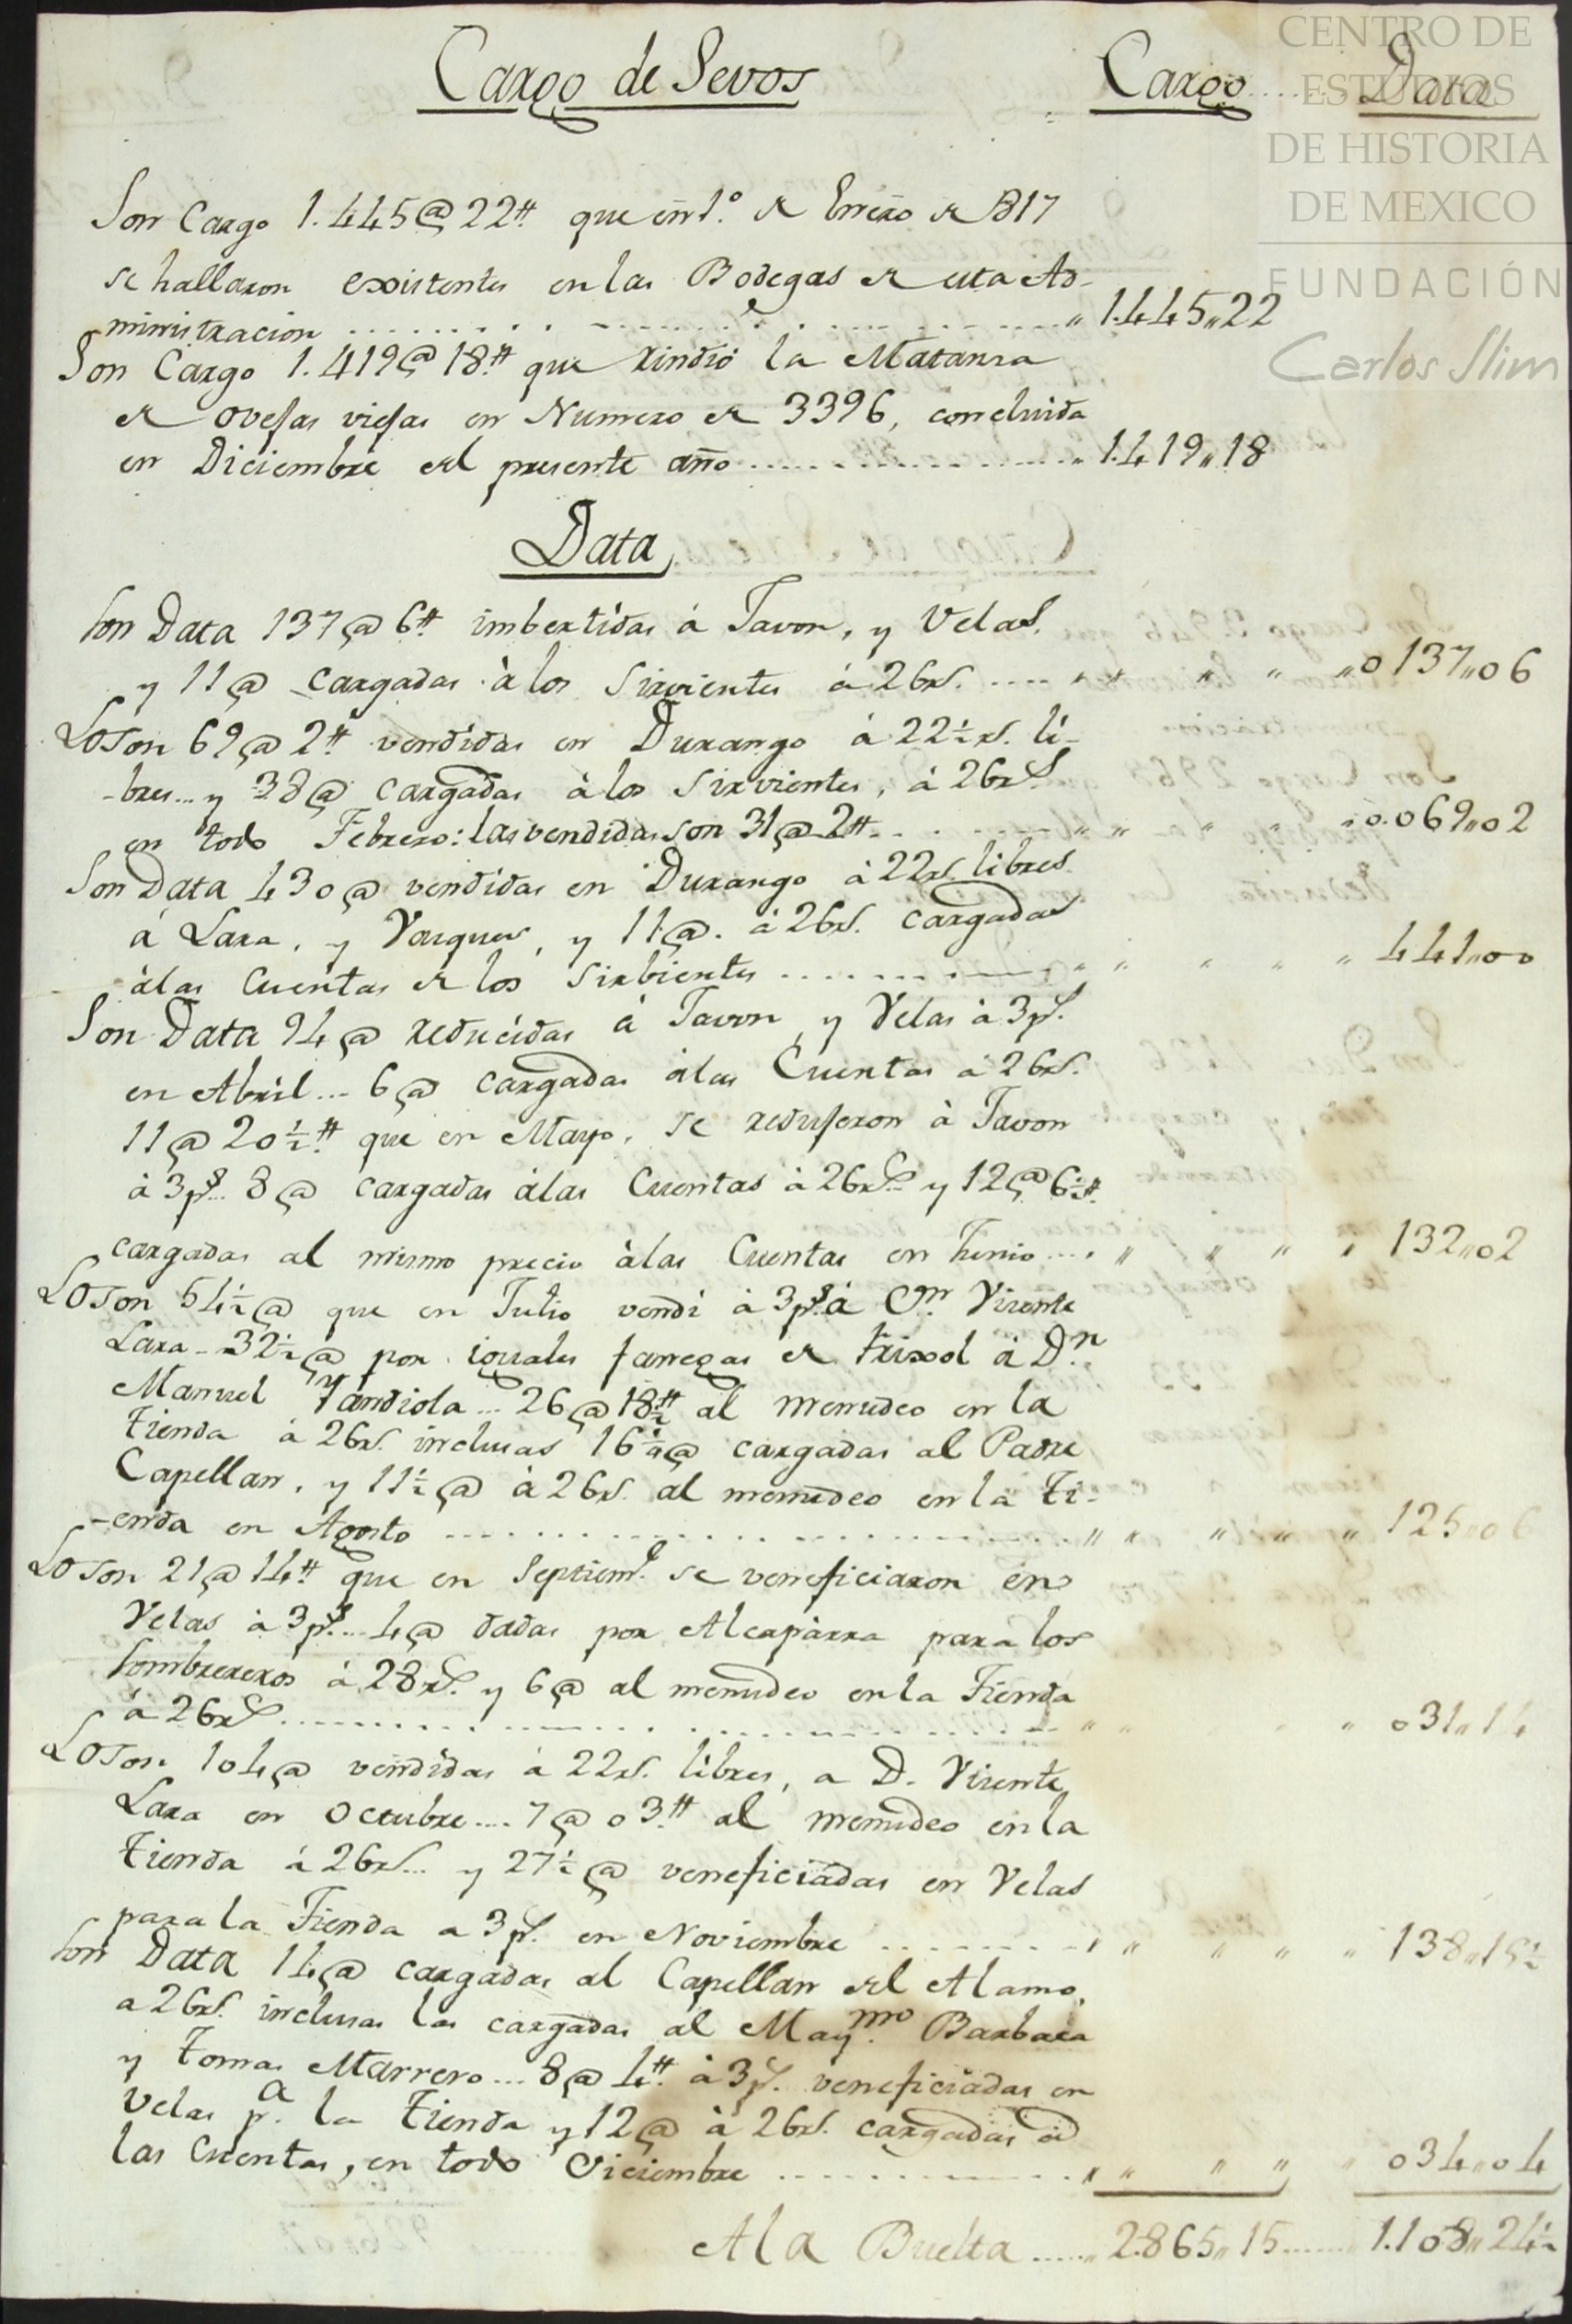 Cargo de Sevos Cargo Data
CENTRO DE
ESTUDIOS
DE HISTORIA
DE MEXICO
FUNDACIÓN
Carlos Slim
Son Cargo 1.445@22tt. que en 1.º de Enero de 817
se hallaron existentes en las Bodegas de esta Ad-
ministracion ........ " 1.445,,22
Son Cargo 1.419@18tt. que rindió la Matansa
de ovejas viejas en Numero de 3396, concluida
en Diciembre del presente año ........ " 1.419,,18
Data
Son Data 137@6tt. imbertidas á Javon, y Velas.
y 11@ cargadas à los Sirvientes á 26rs. .... " " " " " 0137,,06
Lo son 69@2tt. vendidas en Durango á 22½rs. li-
-bres... y 38@ cargadas à los Sirvientes, á 26rs.
en todo Febrero: las vendidas son 31@2tt. ........ " " " " " 0.069,,02
Son Data 430@ vendidas en Durango á 22rs. libres
á Lara, y Vasques, y 11@. á 26rs. cargadas
álas Cuentas de los Sirbientes ........ " " " " " 441,,00
Son Data 94@ reducidas á Javon, y Velas à 3ps.
en Abril... 6@ cargadas álas Cuentas á 26rs.
11@20½tt. que en Mayo, se redujeron à Javon
à 3ps... 8@ cargadas álas Cuentas à 26rs. y 12@6½tt.
cargadas al mismo precio álas Cuentas en Junio .... " " " " 132,,02
Lo son 54½@ que en Julio vendi à 3ps. á Dn. Visente
Lara - 32½@ por iguales fanegas de frixol á Dn.
Manuel Yandiola... 26@18½tt. al menudeo en la
Tienda á 26rs. inclusas 16½@ cargadas al Padre
Capellan, y 11½@ à 26rs. al menudeo en la Ti-
-enda en Agosto ........ " " " " " 125,,06
Lo son 21@14tt. que en Septieme. se veneficiaron en
Velas à 3ps... 4@ dadas por Alcaparra para los
Sombrereros à 28rs. y 6@ al menudeo en la Tienda
á 26rs. ........ " " " " " 031,,14
Lo son 104@ vendidas á 22rs. libres, a D. Visente
Lara en Octubre.... 7@03tt. al menudeo en la
Tienda á 26rs... y 27½@ veneficiadas en Velas
para la Tienda a 3ps. en Noviembre ........ " " " " " 138,,15½
Son Data 14@ cargadas al Capellan del Alamo,
a 26rs. inclusas las cargadas al Maymo. Barbara
y Tomas Marrero... 8@4tt. à 3ps. veneficiadas en
Velas pa. la Tienda y 12@ à 26rs. cargadas á
las Cuentas, en todo Diciembre ........ " " " " " 034,,04
A la Buelta ..... " 2.865,,15 ...... " 1.108,,24½